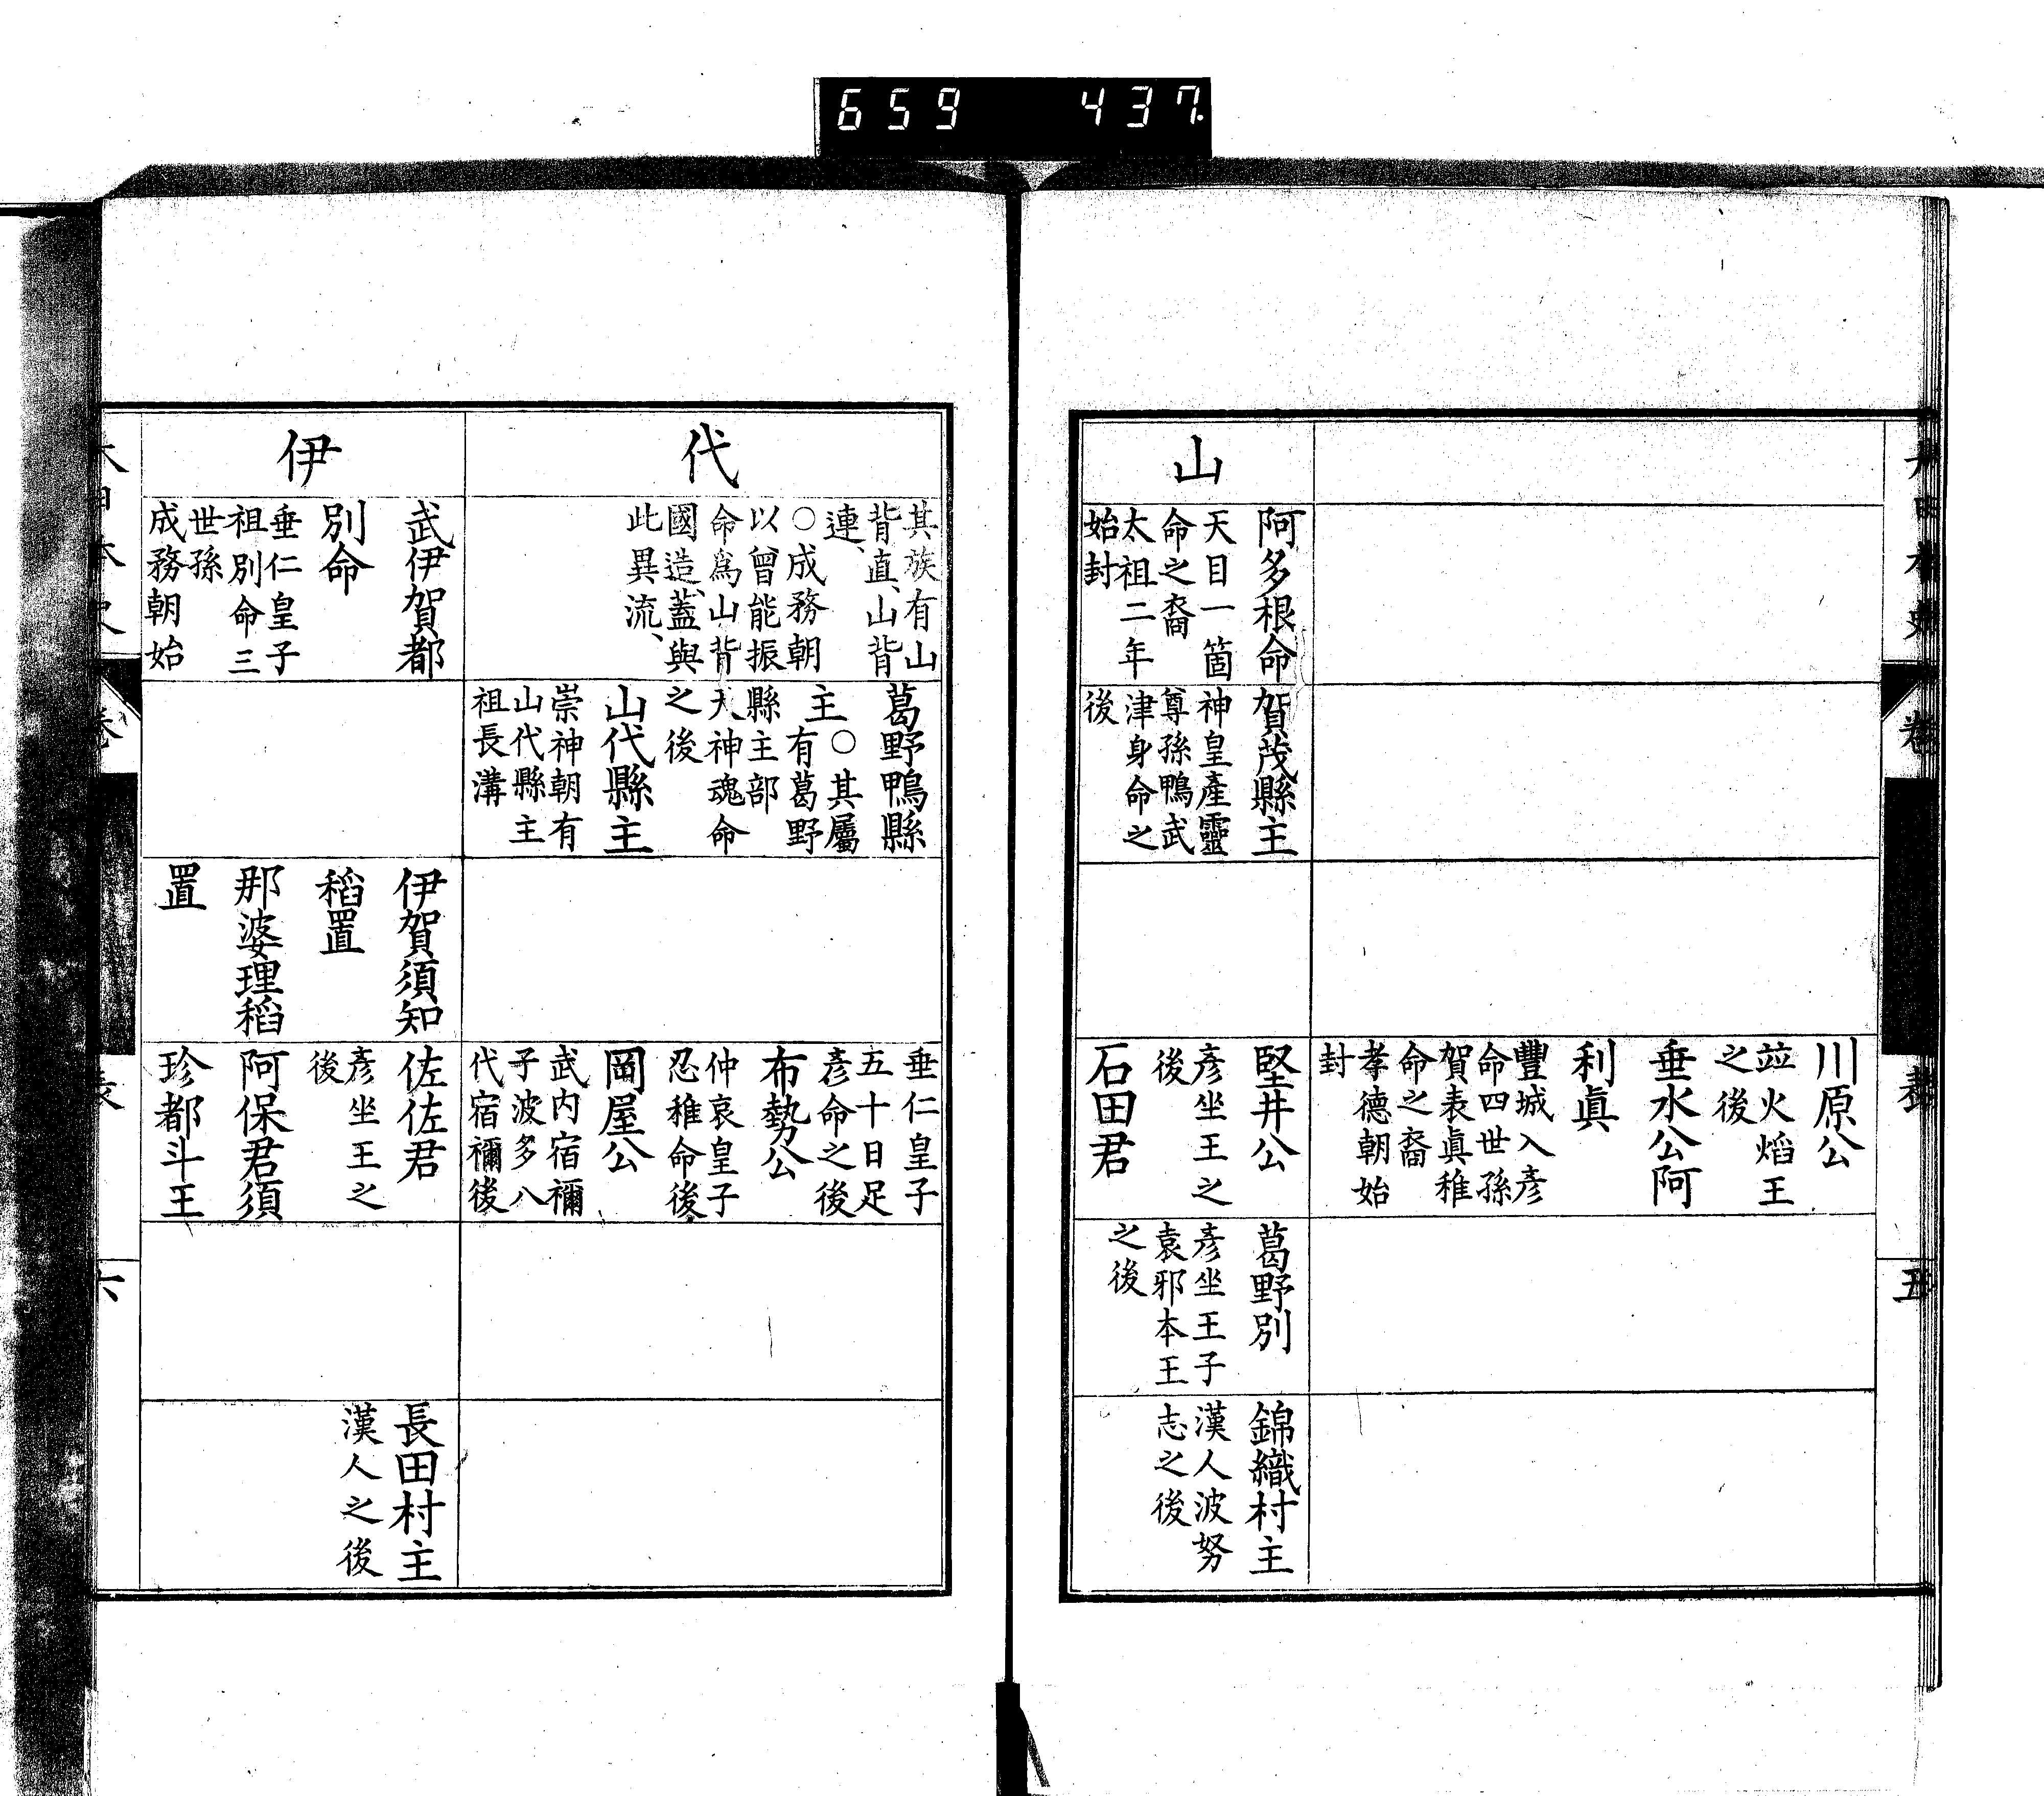 659 437
川原公
竝火焰王
之後
垂水公阿
利眞
豐城入彥
命四世孫
賀表眞稚
命之裔
孝德朝始
封
山
阿多根命
天目一箇
命之裔
太祖二年
始封
賀茂縣主
神皇產靈
尊孫鴨武
津身命之
後
堅井公
彥坐王之
後
石田君
葛野別
彥坐王子
袁邪本王
之後
錦織村主
漢人波努
志之後
卷
表
五
代
其族有山
背直、山背
連、
○成務朝
以曾能振
命爲山背
國造、蓋與
此異流、
葛野鴨縣
主○其屬
有葛野
縣主部
天神魂命
之後
山代縣主
崇神朝有
山代縣主
祖長溝
垂仁皇子
五十日足
彥命之後
布勢公
仲哀皇子
忍稚命後
岡屋公
武內宿禰
子波多八
代宿禰後
伊
武伊賀都
別命
垂仁皇子
祖別命三
世孫
成務朝始
伊賀須知
稻置
那婆理稻
置
佐佐君
彥坐王之
後
阿保君須
珍都斗王
長田村主
漢人之後
六